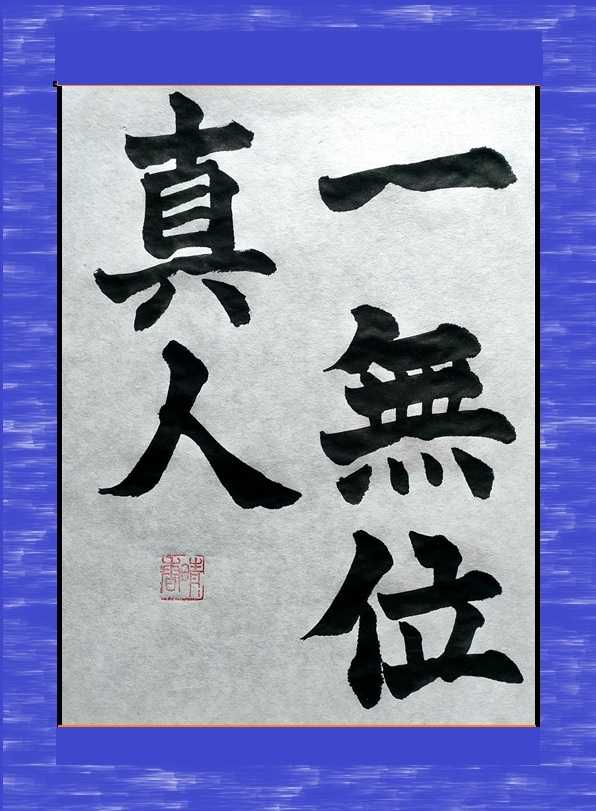 一無位
真人